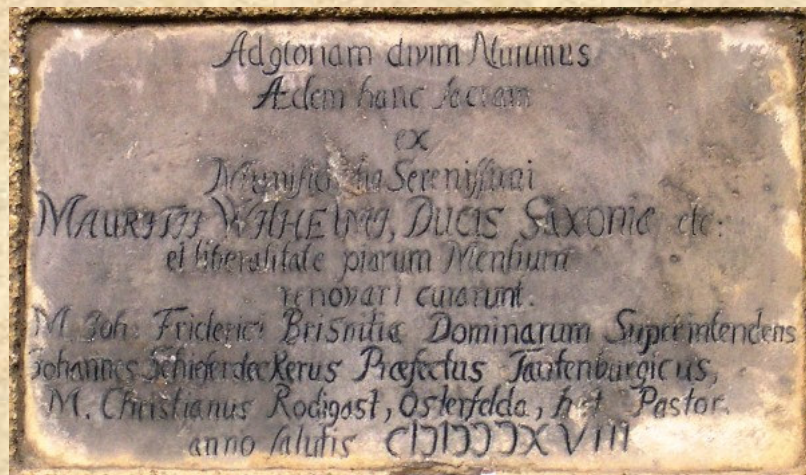 Ad gloriam divini Numinus
Ædem hanc sacram
ex
Munificentia Serenissimi
MAURITII WILHELMI, DUCIS SAXONIÆ etc:
et liberalitate piarum Mentium
renovari curarunt.
M. Joh: Friderici Brisnitiæ Dominarum Supreintendens
Johannes Schieferdeckerus Præfectus Tautenburgicus,
M. Christianus Rodigast, Osterfelda, Pastor.
anno salutis